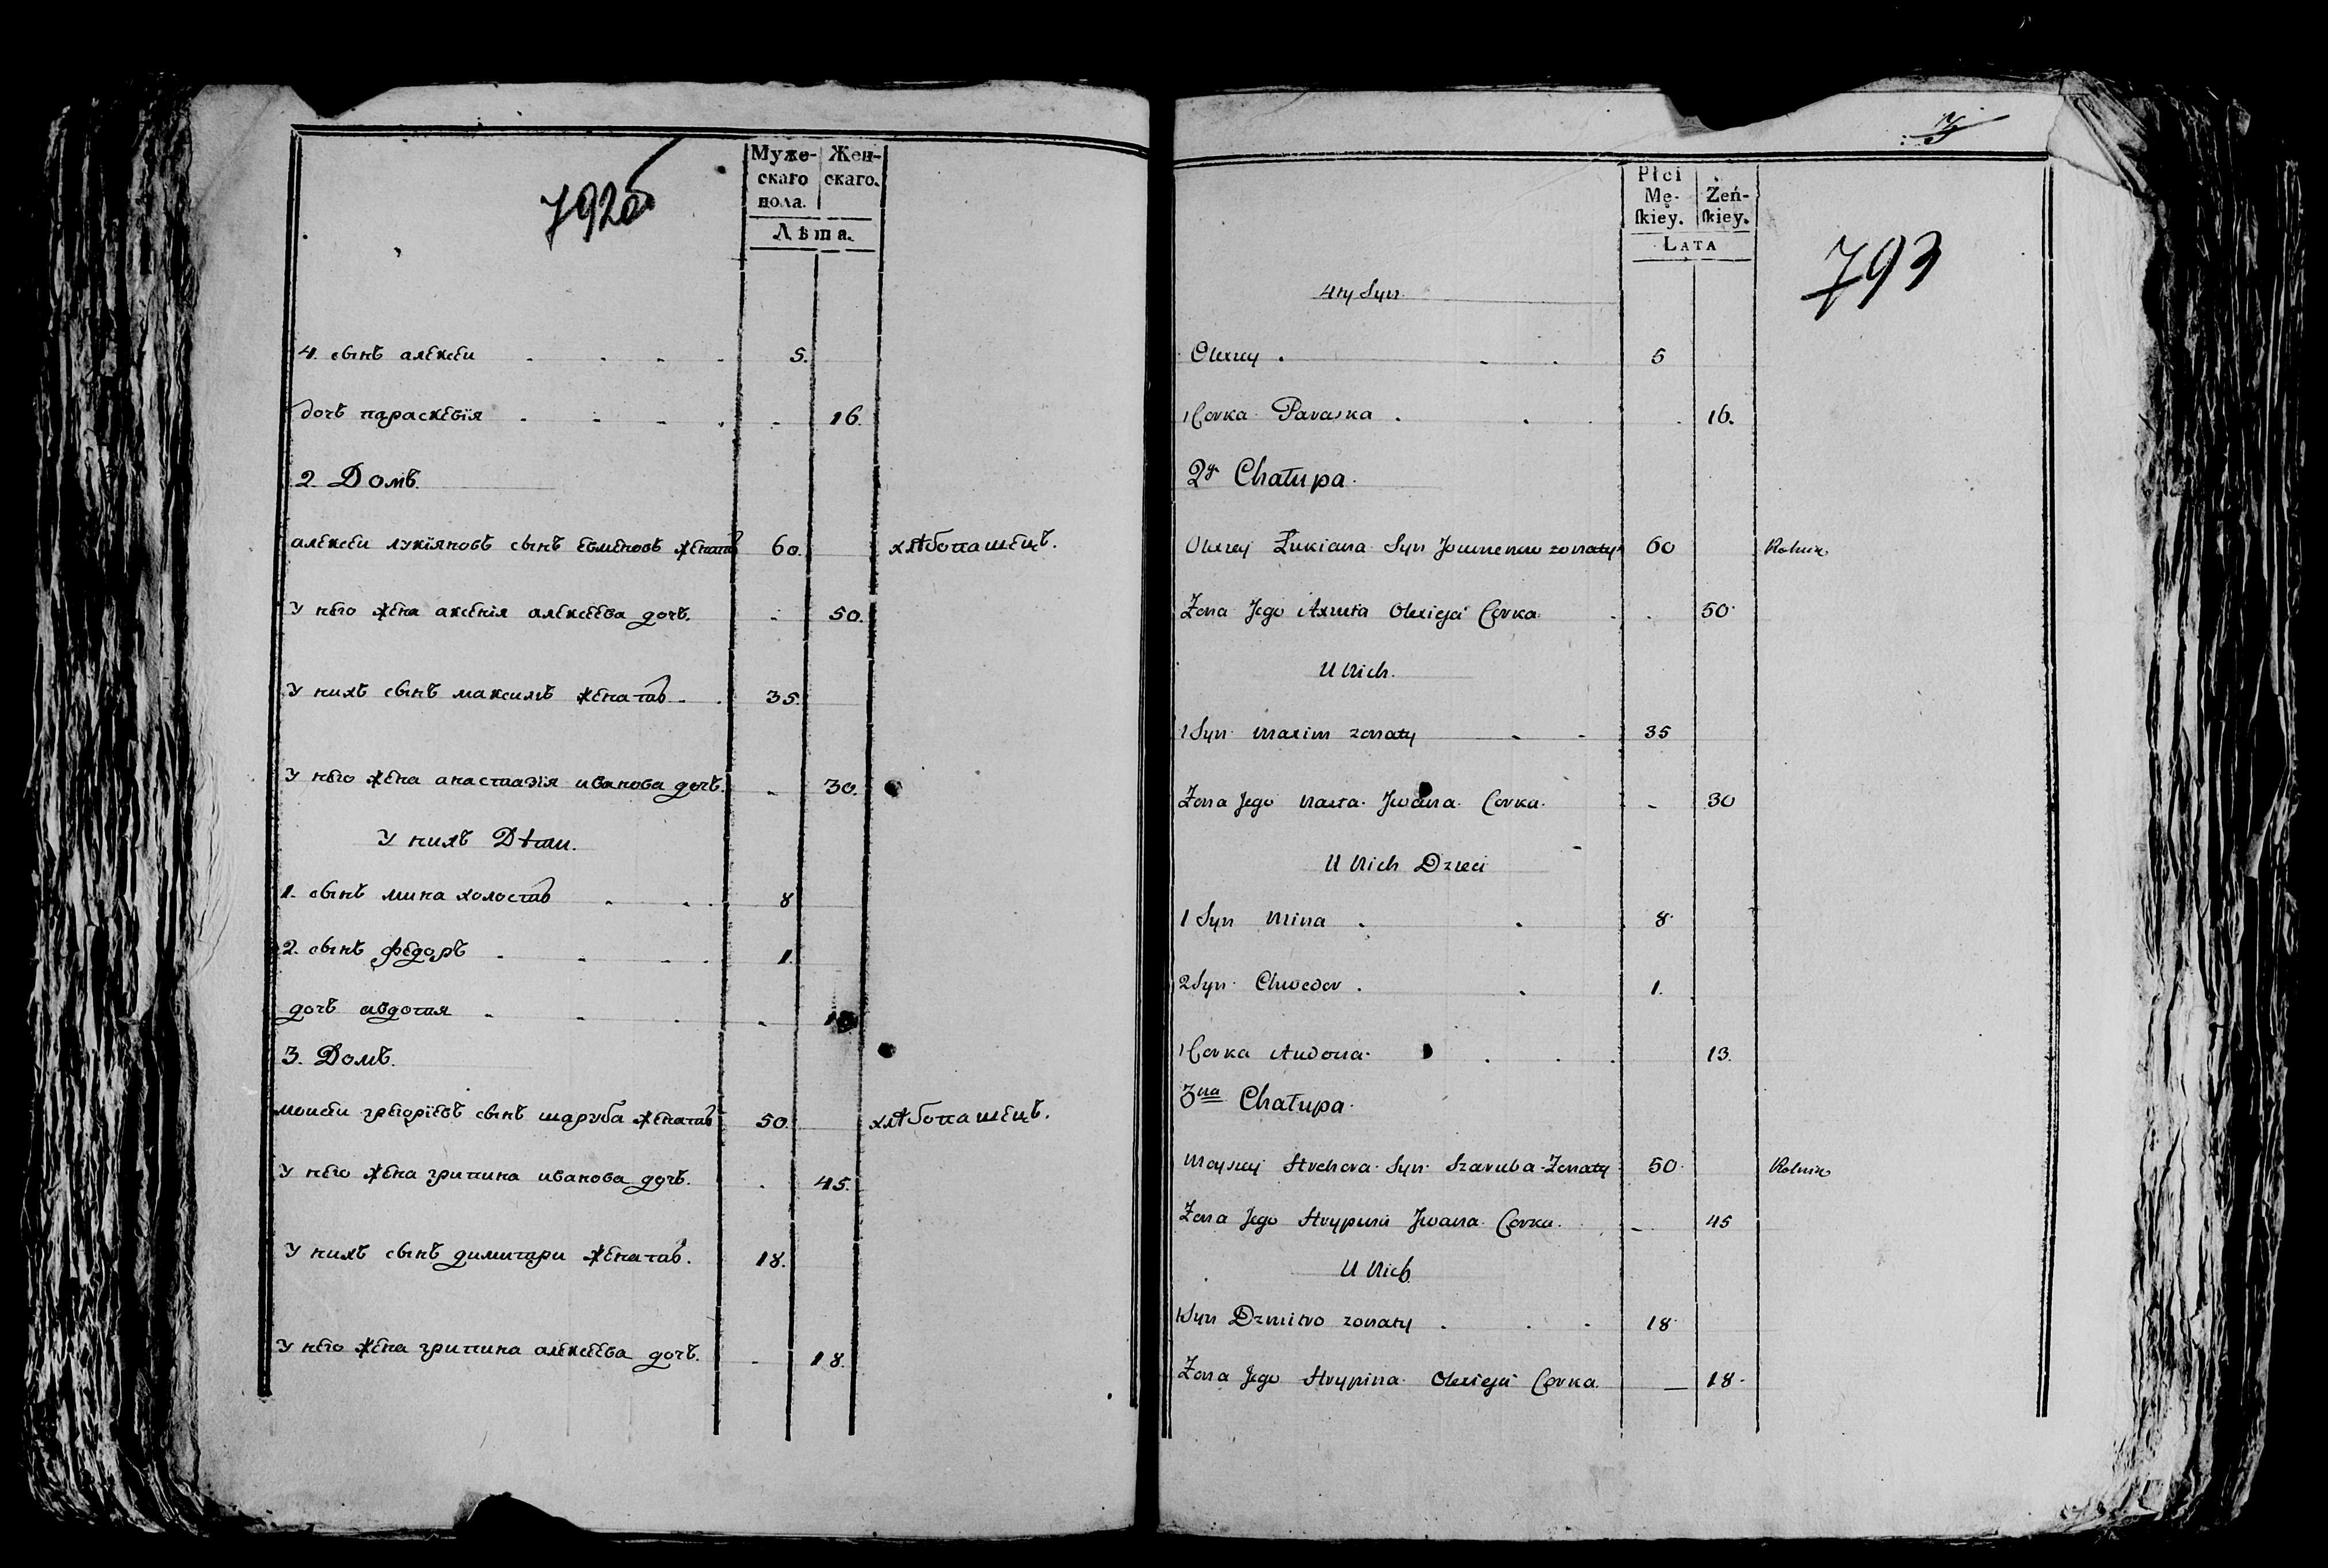 792об
Муже-
скаго
пола.
Жен-
скаго.
Лѣта.
4. сынъ алексеи 5.
дочъ параскевія 16.
2. Домъ.
алексеи лукіяновъ сынъ евменовъ женатъ 60. хлѣбопашецъ.
У него жена аксенія алексеева дочъ. 50.
У нихъ сынъ максимъ женатъ 35.
У него жена анастазія иванова дочъ. 30.
У нихъ Дѣти.
1. сынъ мина холостъ 8
2. сынъ федоръ 1.
дочъ авдотия
3. Домъ.
моисеи григоріевъ сынъ шаруба женатъ 50. хлѣбопашецъ.
У него жена грипина иванова дочъ. 45.
У нихъ сынъ димитри женатъ. 18.
У него жена грипина алексеева дочъ. 18.
Płci
Mę-
skiey.
Żeń-
skiey.
LATA
793
4ty Syn
Olexey 5
1 Corka Paraska 16.
2ga Chałupa.
Olexey Łukiana Syn Jowmenow zonaty 60 Rolnik
Zona Jego Axiuta Olexieja Corka 50
U Nich.
1 Syn Maxim zonaty 35
Zona Jego Nasta Jwana Corka 30
U Nich Dzieci
1 Syn Mina 8
2 Syn Chwedor 1.
1 Corka Audotia 13.
3cia Chałupa.
Moysiey Hrehora Syn Szaruba Zonaty 50 Rolnik
Zona Jego Hrypina Jwana Corka 45
U Nich
1 Syn Dzmitro zonaty 18
Zona Jego Hrypina Olexieja Corka 18